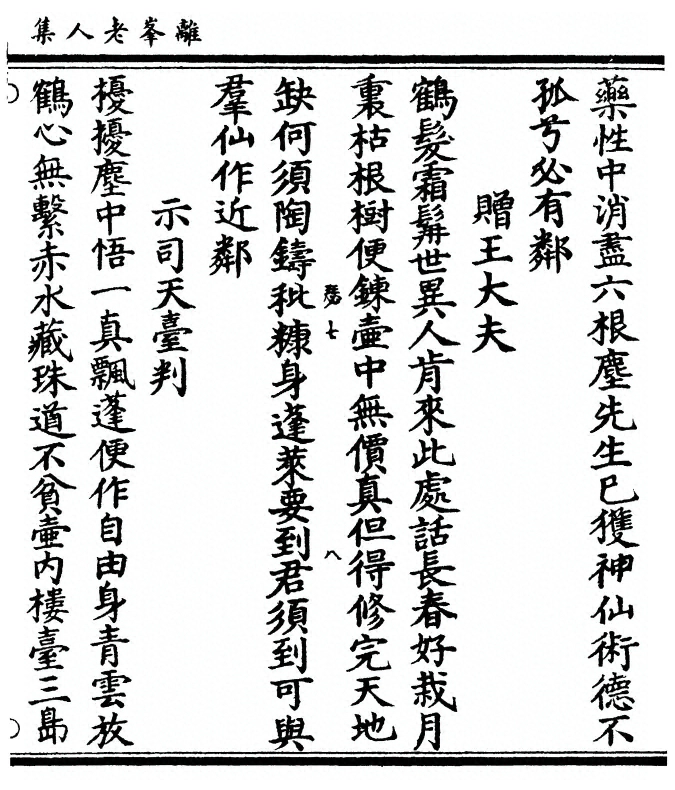 離峯老人集
藥性中消盡六根塵先生已獲神仙術德不
孤兮必有鄰
贈王大夫
鶴髮霜髯世異人肯來此處話長春好栽月
裏枯根樹便鍊壺中無價真但得修完天地
缺何須陶鑄秕糠身蓬萊要到君須到可與
羣仙作近鄰
示司天臺判
擾擾塵中悟一真飄蓬便作自由身青雲放
鶴心無繫赤水藏珠道不貧壺內樓臺三島